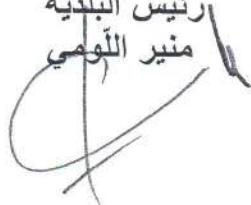 رئيس البلدية
منير اللّومي